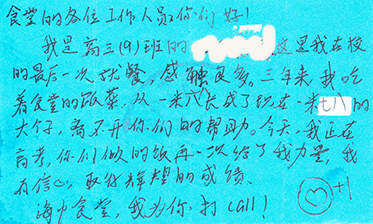 食堂的各位工作人员：你们好！
我是高三(9)班的 这里我在校
的最后一次就餐，感触良多。三年来，我吃
着食堂的饭菜，从一米六长成了现在一米七八的
大个子，离不开你们的帮助。今天，我正在
高考，你们做的饭再一次给了我力量，我
有信心，取得辉煌的成绩。
海中食堂，我为你打call！
+1